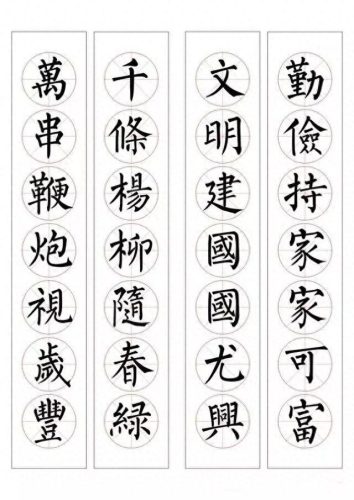 勤儉持家家可富
文明建國國尤興
千條楊柳隨春緑
萬串鞭炮視歲豐